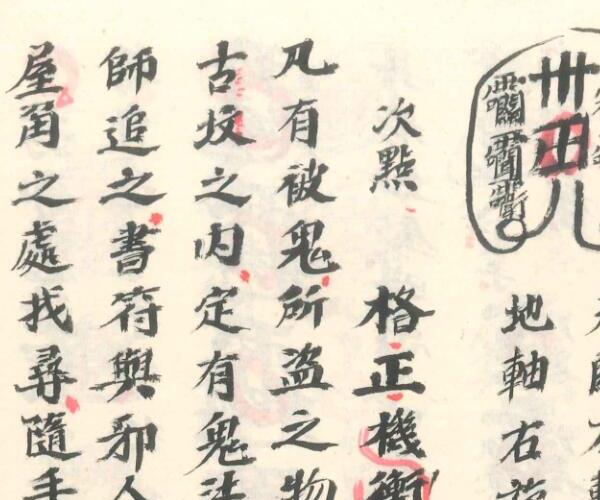 地軸右
次點　格正機衡
凡有被鬼所盜之物
古坟之内定有鬼
師追之書符與邪人
屋角之處找尋隨手